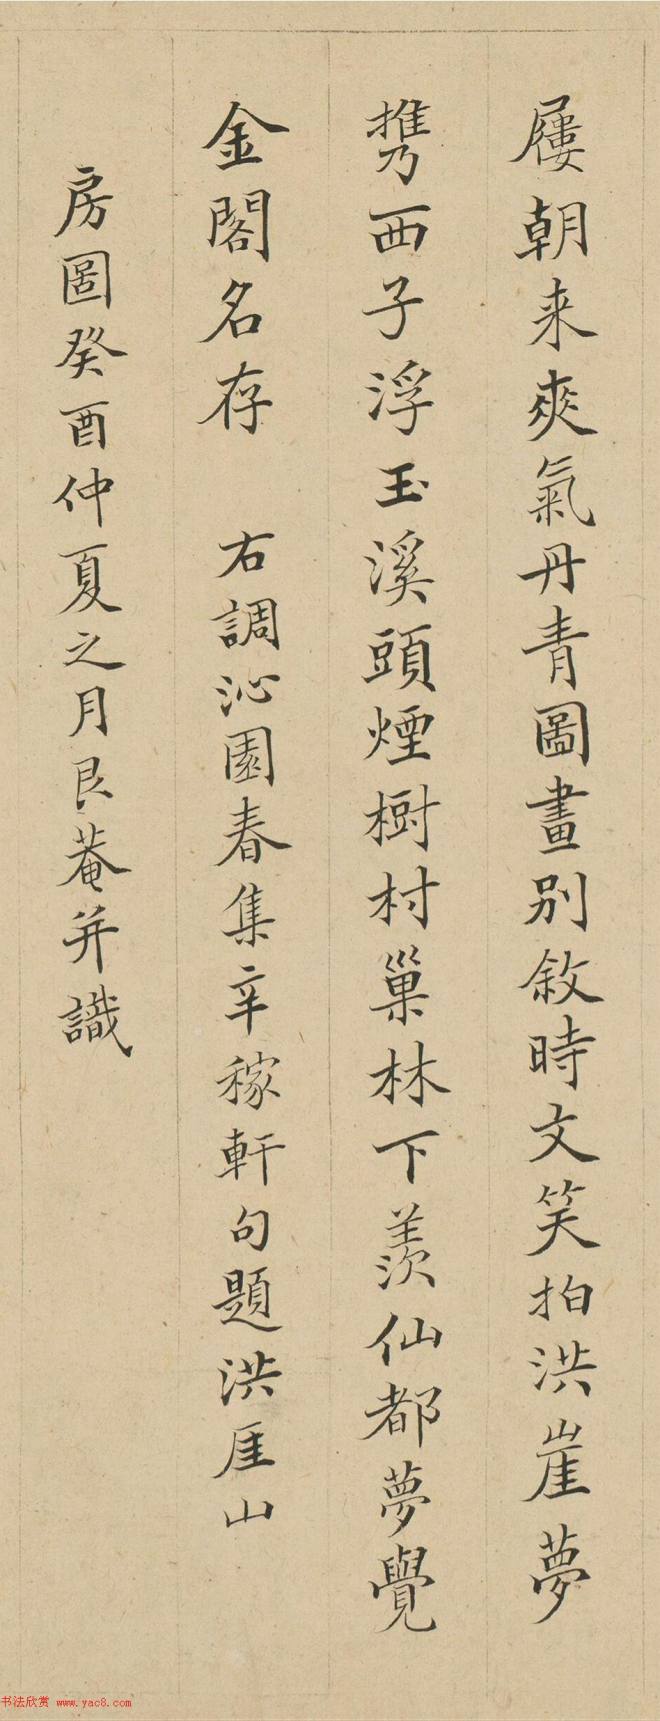 屨朝来爽氣丹青圖畫別敘時文笑拍洪崖夢
携西子浮玉溪頭煙樹村巢林下羨仙都夢覺
金閣名存 右調沁園春集辛稼軒句題洪厓山
房圖癸酉仲夏之月艮菴并識
书法欣赏 www.yac8.com